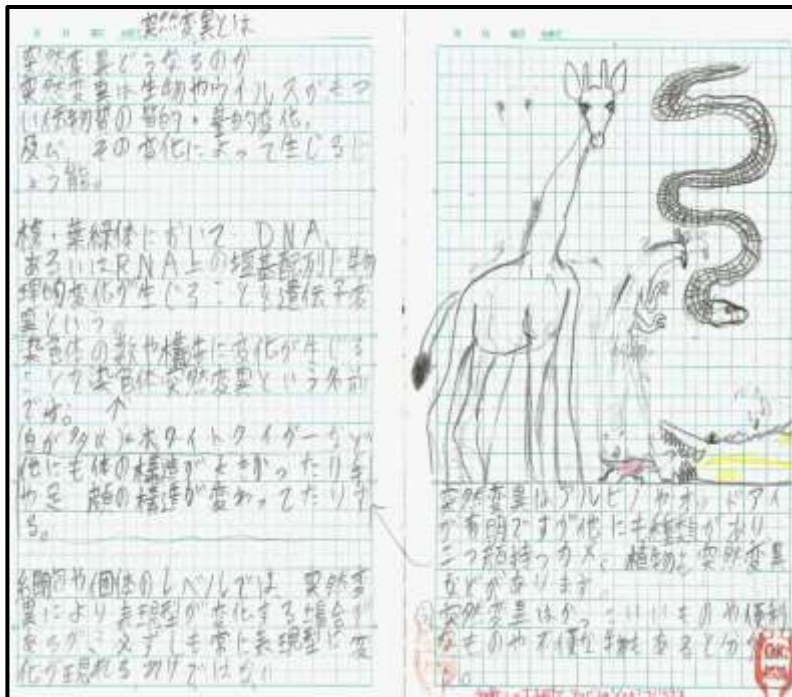 突然変異とは
突然変異どうなるのか
突然変異は生物やウイルスがもつ
い伝物質の質的・量的変化。
及び、その変化によって生じるじ
ょう態。
核・葉緑体において、DNA、
あるいはRNA上の塩基配列に物
理的変化が生じることを遺伝子変
異という。
染色体の数や構造に変化が生じる
ことを染色体突然変異という名前
です。 ↑
ホワイトタイガーなど
他にも体の構造が ったり手
や足、顔の構造が変わってたりす
る。
細胞や個体のレベルでは、突然変
異により表現型が変化する場合が
あるが、 ずしも常に表現型に変
化が現れるわけではない
突然変異はアルビノやオッドアイ
が有名ですが他にも種類があり
二つ頭持つカメ、植物も突然変異
などがあります。
突然変異はかっこいいものや便利
なものや不便な物もあると
る。